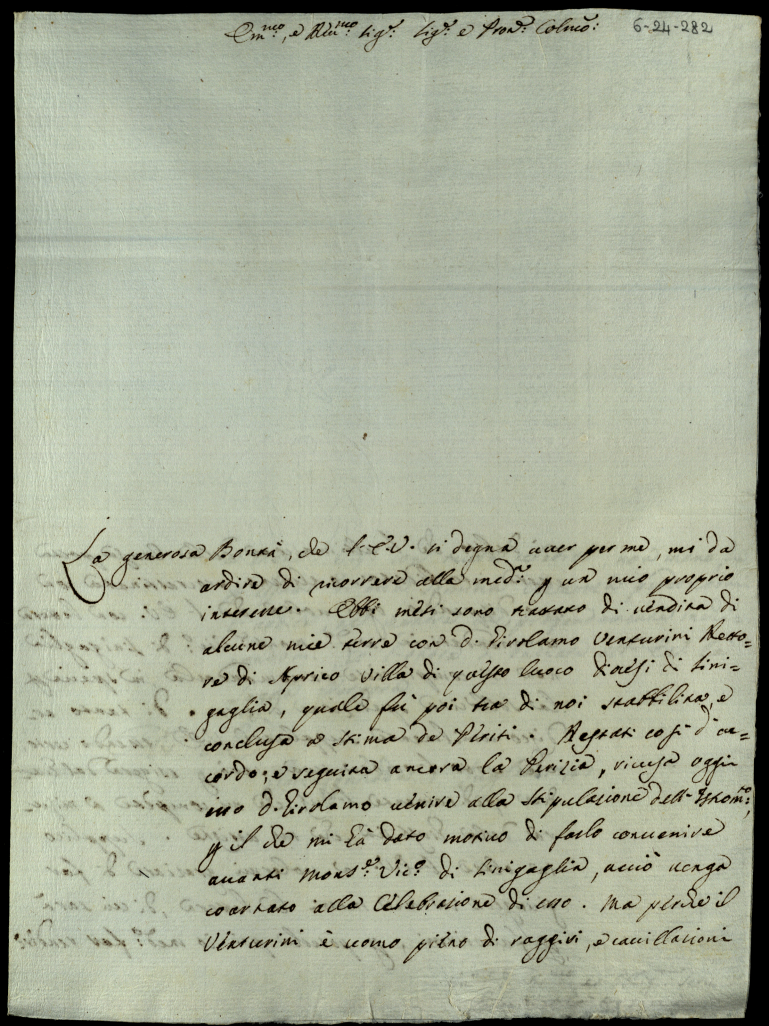 Em.mo, e Rev.mo Sig.r Sig.r e Pron. Colmo: 6-24-282
La generosa Bontà, che l'E.V. si degna aver per me, mi da
ardire di ricorrere alla med.a p un mio proprio
interesse. Ebbi mesi sono trattato di vendita di
alcune mie terre con d. Girolamo Venturini Retto=
re di Aprico villa di questo luoco diocesi di Sini=
gaglia, quale fù poi tra di noi stabbilita, e
conclusa a stima de Periti. Restati così d'ac=
cordo, e seguita ancora la Perizia, ricusa oggi
esso d. Girolamo venire alla stipulazione dell'Istrom.to,
p il che mi hà dato motivo di farlo convenire
avanti Mons.r Vic.o di Sinigaglia, acciò venga
coartato alla Celebrazione di esso. Ma perche il
Venturini è uomo pieno di raggiri, e cavillazioni